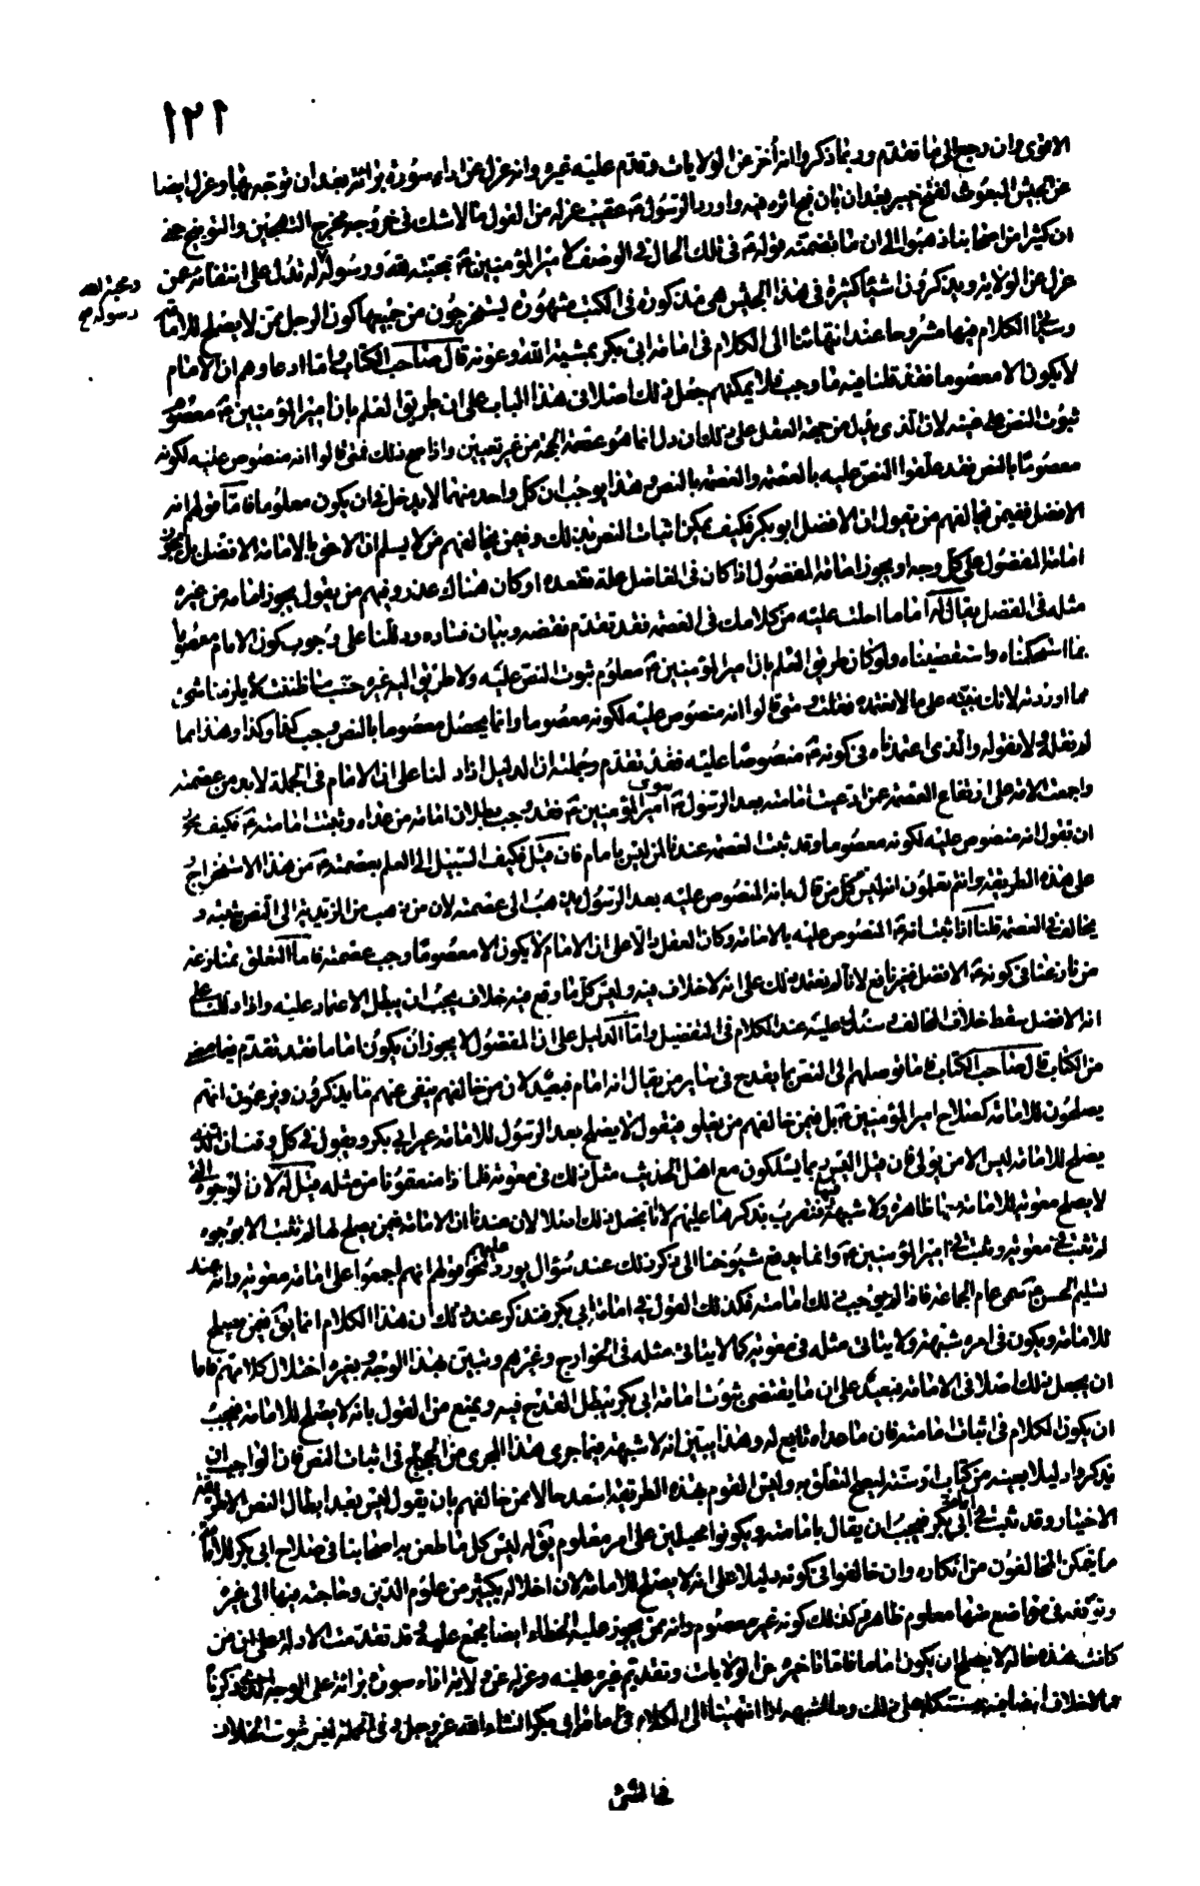 ١٢١
الاقوى وان رجع الى ما تقدم وربما ذكروا انه أخر عن الولايات وقدم عليه غيره وانه عزل عن اداء سورة برائة بعد ان توجه بها وعزل ايضا
عن الجيش المبعوث لفتح خيبر بعد ان بان قبح اثره فيه واورد الرسول عقيب عزله من القول ما لا شك فى خروجه مخرج التهجين والتوبيخ حتى
ان كثيرا من اصحابنا ذهبوا الى ان ما تضمنه قوله فى تلك الحال فى الوصف لامير المؤمنين بمحبته لله ورسوله له تدل على انتفائه عن
ومحبة الله
ورسوله
عزل عن الولاية ويذكرون اشياء كثيرة فى هذا الجنس هى مذكورة فى الكتب مشهورة يستخرجون من جميعها كون الرجل ممن لا يصلح للامامة
وسيأتى الكلام فيها مشروحا عند انتهائنا الى الكلام فى امامة ابى بكر بمشية الله وعونه قال صاحب الكتاب واما ادعاوهم ان الامام
لا يكون الا معصوما فقد قلنا فيه ما وجب فلا يمكنهم جعل ذلك اصلا فى هذا الباب على ان طريق العلم بان امير المؤمنين معصوم
ثبوت النص عليه لان الذى يدل من جهة العقل على ذلك ان دل انما هو عصمة الحجة من غير تعيين واذا صح ذلك فمتى قالوا انه منصوص عليه لكونه
معصوما بالنص فقد علقوا النص عليه بالعصمة والعصمة بالنص وهذا يوجب ان كل واحد منهما لا يدخل فى ان يكون معلوما فاما قولهم انه
الافضل ففيمن يخالفهم من يقول ان الافضل ابو بكر فكيف يمكن اثبات النص بذلك وفيمن يخالفهم من لا يسلم ان الاحق بالامامة الافضل بل يجوز
امامة المفضول على كل وجه او يجوز امامة المفضول اذا كان فى الفاضل علة تقعده او كان هناك عذر وفيهم من يقول يجوز امامة من غيره
مثله فى الفضل يقال له اما ما احلت عليه من كلامك فى العصمة فقد تقدم نقضه وبيان فساده ودللنا على وجوب كون الامام معصوما
بما استحكمناه واستقصيناه ولو كان طريق العلم بان امير المؤمنين معلوم ثبوت النص عليه ولا طريق اليه غيره حسب ما ظننت لا يلزمنا شئ
مما اوردته لانك بنيته على ما لا نعتمده فقلت متى قالوا انه منصوص عليه لكونه معصوما وانما يحصل معصوما بالنص وجب كذا وكذا وهذا مما
لم نقله ولا نقوله والذى اعتمدناه فى كونه منصوصا عليه فقد تقدم وجملته ان الدليل اذا دلنا على ان الامام فى الجملة لابد من عصمته
واجمعت الامة على ارتفاع العصمة عن ادعيت امامته بعد الرسول سوى امير المؤمنين فقد وجب بطلان امامة من عداه وثبتت امامته فكيف يجوز
ان نقول انه منصوص عليه لكونه معصوما وقد ثبت العصمة عندنا لمن ليس بامام فان قيل فكيف السبيل الى العلم بعصمته من هذا الاستخراج
على هذه الطريقة وانتم تعلمون انه ليس كل من قال بانه المنصوص عليه بعد الرسول يذهب الى عصمته لان من يذهب من الزيدية الى النص يثبته و
يخالف فى العصمة قلنا اذا ثبت انه المنصوص عليه بالامامة وكان العقل دالا على ان الامام لا يكون الا معصوما وجب عصمته فاما التعلق بمنازعة
من نازعنا فى كونه الافضل فغير نافع لانا لم نعتمد ذلك على انه لا خلاف فيه وليس كل ما وقع فيه خلاف يجب ان يبطل الاعتماد عليه واذا دللنا على
انه الافضل سقط خلاف المخالف وسندل عليه عند الكلام فى التفضيل واما الدليل على ان المفضول لا يجوز ان يكون اماما فقد تقدم فيما مضى
من الكتاب قال صاحب الكتاب فاما توصلهم الى النص بما يقدح فى ساير من يقال انه امام فبعيد لان من خالفهم ينفى عنهم ما يذكرون ويزعمون انهم
يصلحون للامامة كصلاح امير المؤمنين بل فيمن خالفهم من يغلو فيقول لا يصلح بعد الرسول للامامة غير ابى بكر ويقول فى كل وقت ان الذى
يصلح للامامة ليس الا من يولى فان قيل اليس ربما يسلكون مع اهل الحديث مثل ذلك فى معوية فلماذا منعتمونا من مثله قيل له لان الوجوه التى
لا يصلح معوية للامامة فيها ظاهرة ولا شبهة فيها فنقرب بذكرها عليهم لا نا نجعل ذلك اصلا لان عندنا ان الامامة فيمن يصلح لها لم تثبت الا بوجوه
لم تثبت فى معوية وثبتت فى امير المؤمنين وانما يدفع شيوخنا الى ذكر ذلك عند سؤال يورد عليهم نحو قولهم انهم اجمعوا على امامة معوية وانه عند
تسليم الحسن سمى عام الجماعة فاذا لم يوجب ذلك امامته فكذلك القول فى امامة ابى بكر فنذكر عند ذلك ان هذا الكلام انما يؤثر فيمن يصلح
للامامة ويكون فى امره شبهة ولا يتاتى مثله فى معوية كما لا يتاتى مثله فى الخوارج وغيرهم ونبين بهذا الوجه وبغيره اختلال كلامهم فاما
ان يجعل ذلك اصلا فى الامامة فبعيد على ان ما يقتضى ثبوت امامة ابى بكر يبطل القدح فيه ويمنع من القول بانه لا يصلح للامامة فيجب
ان يكون الكلام فى اثبات امامته فان ما عداه تابع له وهذا يبين انه لا شبهة فيما جرى هذا المجرى من الحجاج فى اثبات النص فان الواجب ان
يذكروا دليلا بعينه من كتاب او سنة ليصح التعلق به وليس القوم بهذه الطريقة اسعد حالا ممن خالفهم بان يقول ليس بعد ابطال النص الا طريقة
الاختيار وقد ثبت فى ابى بكر امامته فيجب ان يقال بامامته ويكونوا محيلين على امر معلوم يقال له ليس كل ما طعن به اصحابنا فى صلاح ابى بكر للامامة
ما يمكن المخالفون من انكاره وان خالفوا فى كونه دليلا على انه لا يصلح للامامة لان اخلاله بكثير من علوم الدين وحاجته فيها الى غيره
وتوقفه فى مواضع منها معلوم ظاهر وكذلك كونه غير معصوم وانه ممن يجوز عليه الخطاء ايضا مجمع عليه وقد تقدمت الادلة على ان من
كانت هذه حاله لا يصلح ان يكون اماما فاما تاخيره عن الولايات وتقديم غيره عليه وعزله عن ولاية اداء سورة برائة على الوجه الذى ذكرنا
مما لا خلاف ايضا فيه وسنتكلم على ذلك وما اشبهه اذا انتهينا الى الكلام فى امامة ابى بكر انشاء الله عز وجل وفى الجملة ليس ثبوت الخلاف
فى الشئ